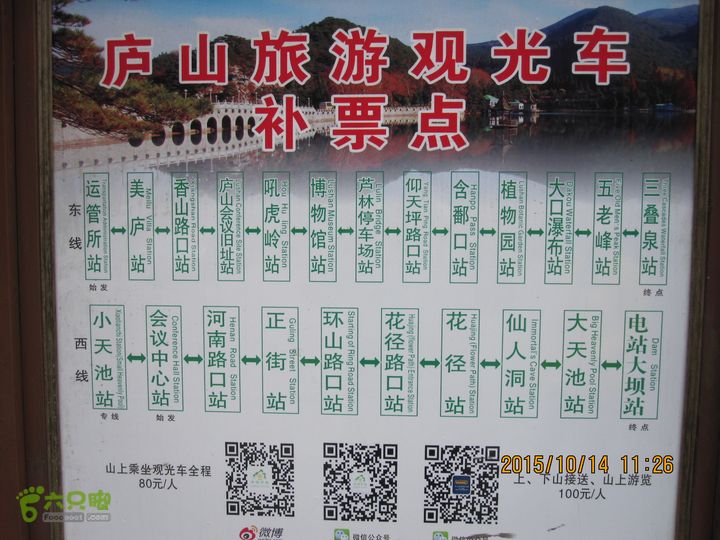 庐山旅游观光车
补票点
东线
运管所站 Transportation Administration Station
始发
美庐站 Meilu Villa Station
香山路口站 Xiangshan Road Station
庐山会议旧址站 Lushan Conference Site Station
吼虎岭站 Hou Hu ling Station
博物馆站 Lushan Museum Station
芦林停车场站 Lulin Bridge Station
仰天坪路口站 Yang Tian Ping Road Station
含鄱口站 Hanpo Pass Station
植物园站 Lushan Botanic Garden Station
大口瀑布站 Dakou Waterfall Station
五老峰站 Five Old Men's Peak Station
三叠泉站 Three Cascades Waterfall Station
终点
西线
小天池站 Xiaotianchi Station(Small Heavenly Pool)
专线
会议中心站 Conference Hall Station
始发
河南路口站 Henan Road Station
正街站 Guling Street Station
环山路口站 Starting of Ring Road Station
花径路口站 Huajing(flower Path) Entrance Station
花径站 Huajing(Flower Path) Station
仙人洞站 Immortal's Cave Station
大天池站 Big Heavenly Pool Station
电站大坝站 Dam Station
终点
山上乘坐观光车全程
80元/人
上、下山接送、山上游览
100元/人
2015/10/14 11:26
微博
微信公众号
六只脚
Foooooot.com